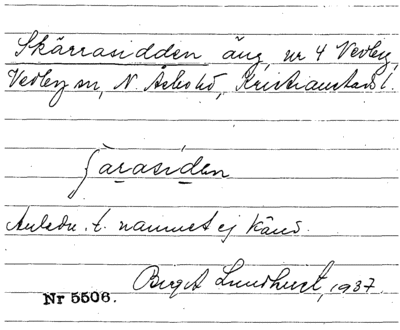 Skärrasidden äng, nr 4 Verley,
Verley sn, N. Asbo hd, Kristianstads l.
särasiden
Anledn. t. namnet ej känd.
Birgit Lundhust, 1937.
Nr 5506.